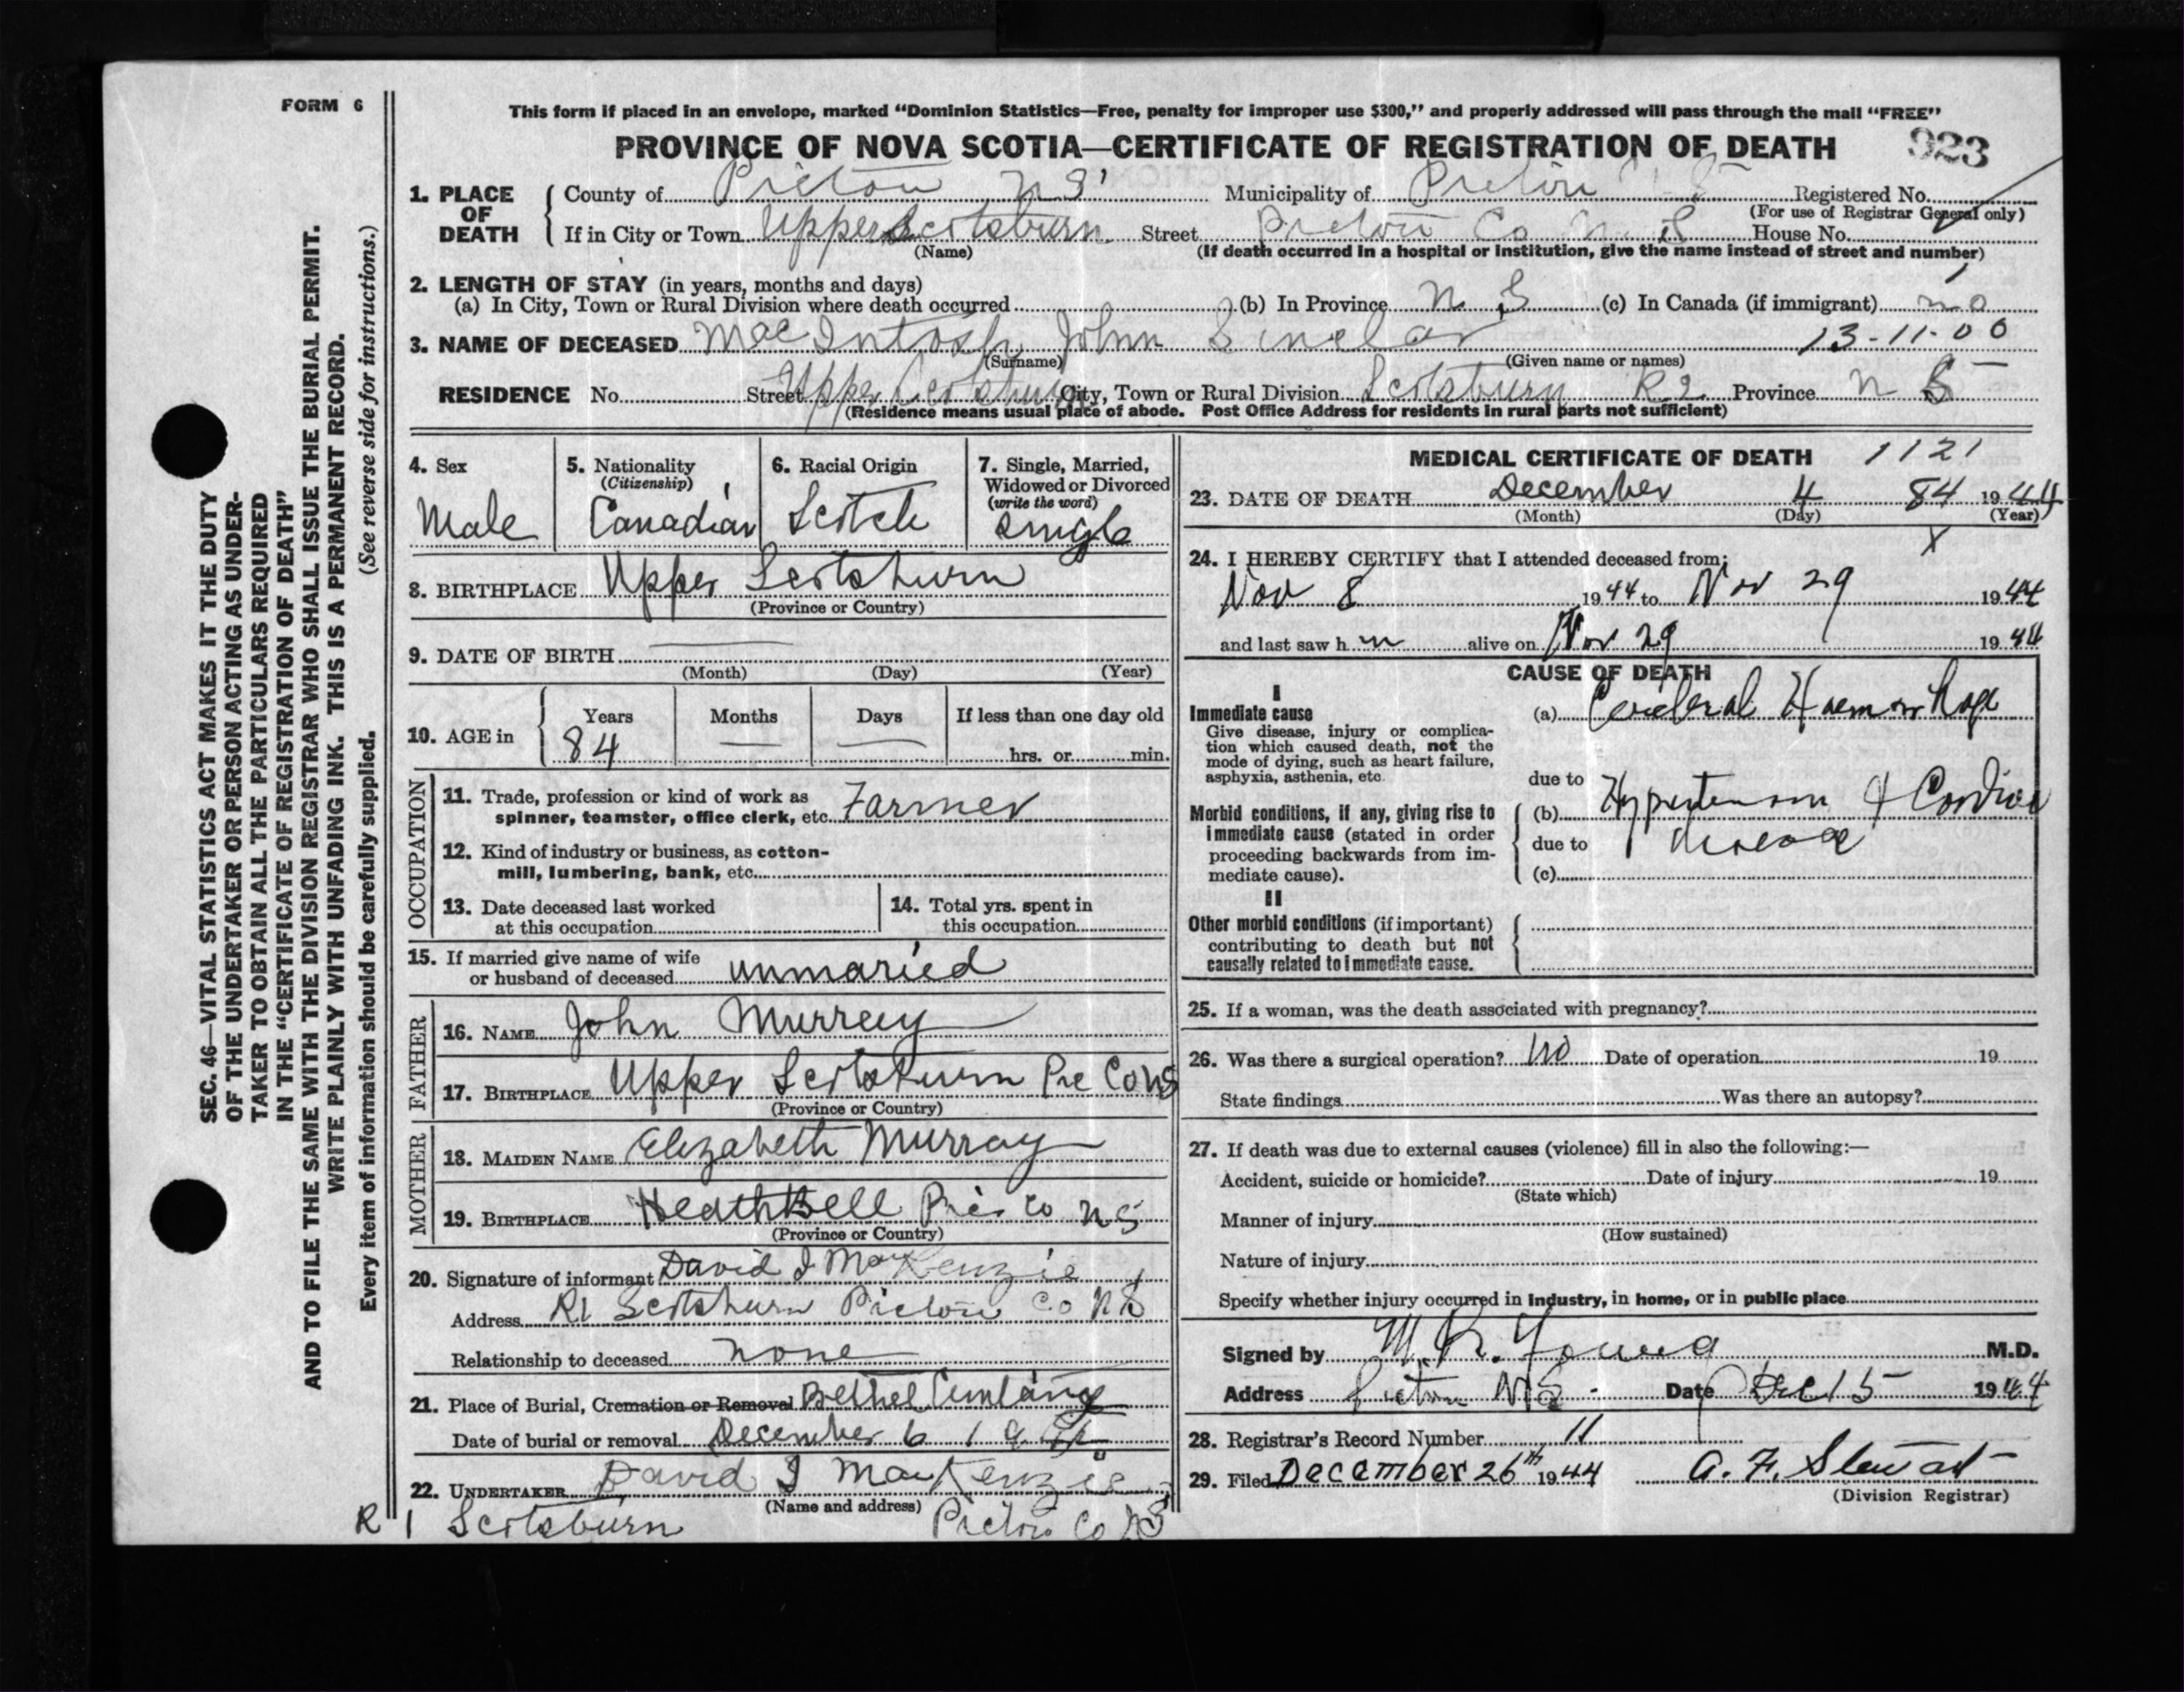 FORM 6
This form if placed in an envelope, marked “Dominion Statistics—Free, penalty for improper use $300,” and properly addressed will pass through the mail “FREE”
PROVINCE OF NOVA SCOTIA—CERTIFICATE OF REGISTRATION OF DEATH 923
1. PLACE OF DEATH
County of Pictou N S Municipality of Pictou N S Registered No.
(For use of Registrar General only)
If in City or Town Upper Scotsburn Street Pictou Co N. S House No.
(Name) (If death occurred in a hospital or institution, give the name instead of street and number)
2. LENGTH OF STAY (in years, months and days)
(a) In City, Town or Rural Division where death occurred (b) In Province N. S (c) In Canada (if immigrant) no
3. NAME OF DECEASED MacIntosh John Sinclar 13-11-00
(Surname) (Given name or names)
RESIDENCE No. Street Upper Scotsburn City, Town or Rural Division Scotsburn R2 Province N S
(Residence means usual place of abode. Post Office Address for residents in rural parts not sufficient)
4. Sex
Male
5. Nationality
(Citizenship)
Canadian
6. Racial Origin
Scotch
7. Single, Married,
Widowed or Divorced
(write the word)
Single
8. BIRTHPLACE Upper Scotsburn
(Province or Country)
9. DATE OF BIRTH
(Month) (Day) (Year)
10. AGE in
Years Months Days If less than one day old
84 — — hrs. or min.
OCCUPATION
11. Trade, profession or kind of work as
spinner, teamster, office clerk, etc. Farmer
12. Kind of industry or business, as cotton-
mill, lumbering, bank, etc.
13. Date deceased last worked
at this occupation
14. Total yrs. spent in
this occupation
15. If married give name of wife
or husband of deceased unmaried
FATHER
16. NAME John Murray
17. BIRTHPLACE Upper Scotsburn Pic Co NS
(Province or Country)
MOTHER
18. MAIDEN NAME Elizabeth Murray
19. BIRTHPLACE HeathBell Pic Co NS
(Province or Country)
20. Signature of informant David I MacKenzie
Address R1 Scotsburn Pictou Co N S
Relationship to deceased none
21. Place of Burial, Cremation or Removal Bethel
Date of burial or removal December 6 1944
22. UNDERTAKER David I MacKenzie
(Name and address)
R 1 Scotsburn Pictou Co NS
MEDICAL CERTIFICATE OF DEATH 1121
23. DATE OF DEATH December 4 84 1944
(Month) (Day) (Year)
X
24. I HEREBY CERTIFY that I attended deceased from:
Nov 8 1944 to Nov 29 1944
and last saw h m alive on Nov 29 1944
CAUSE OF DEATH
I
Immediate cause
Give disease, injury or complica-
tion which caused death, not the
mode of dying, such as heart failure,
asphyxia, asthenia, etc.
(a) Cerebral Haemorrhage
due to
Morbid conditions, if any, giving rise to
immediate cause (stated in order
proceeding backwards from im-
mediate cause).
(b) Hypertension & Cardiac
due to disease
(c)
II
Other morbid conditions (if important)
contributing to death but not
causally related to immediate cause.
25. If a woman, was the death associated with pregnancy?
26. Was there a surgical operation? no Date of operation 19
State findings Was there an autopsy?
27. If death was due to external causes (violence) fill in also the following:—
Accident, suicide or homicide? Date of injury 19
(State which)
Manner of injury
(How sustained)
Nature of injury
Specify whether injury occurred in industry, in home, or in public place
Signed by M. R. Young M.D.
Address Pictou NS. Date Dec 15 1944
28. Registrar's Record Number 11
29. Filed December 26th 1944 A. F. Stewart
(Division Registrar)
SEC. 46—VITAL STATISTICS ACT MAKES IT THE DUTY
OF THE UNDERTAKER OR PERSON ACTING AS UNDER-
TAKER TO OBTAIN ALL THE PARTICULARS REQUIRED
IN THE “CERTIFICATE OF REGISTRATION OF DEATH”
AND TO FILE THE SAME WITH THE DIVISION REGISTRAR WHO SHALL ISSUE THE BURIAL PERMIT.
WRITE PLAINLY WITH UNFADING INK. THIS IS A PERMANENT RECORD.
Every item of information should be carefully supplied. (See reverse side for instructions.)